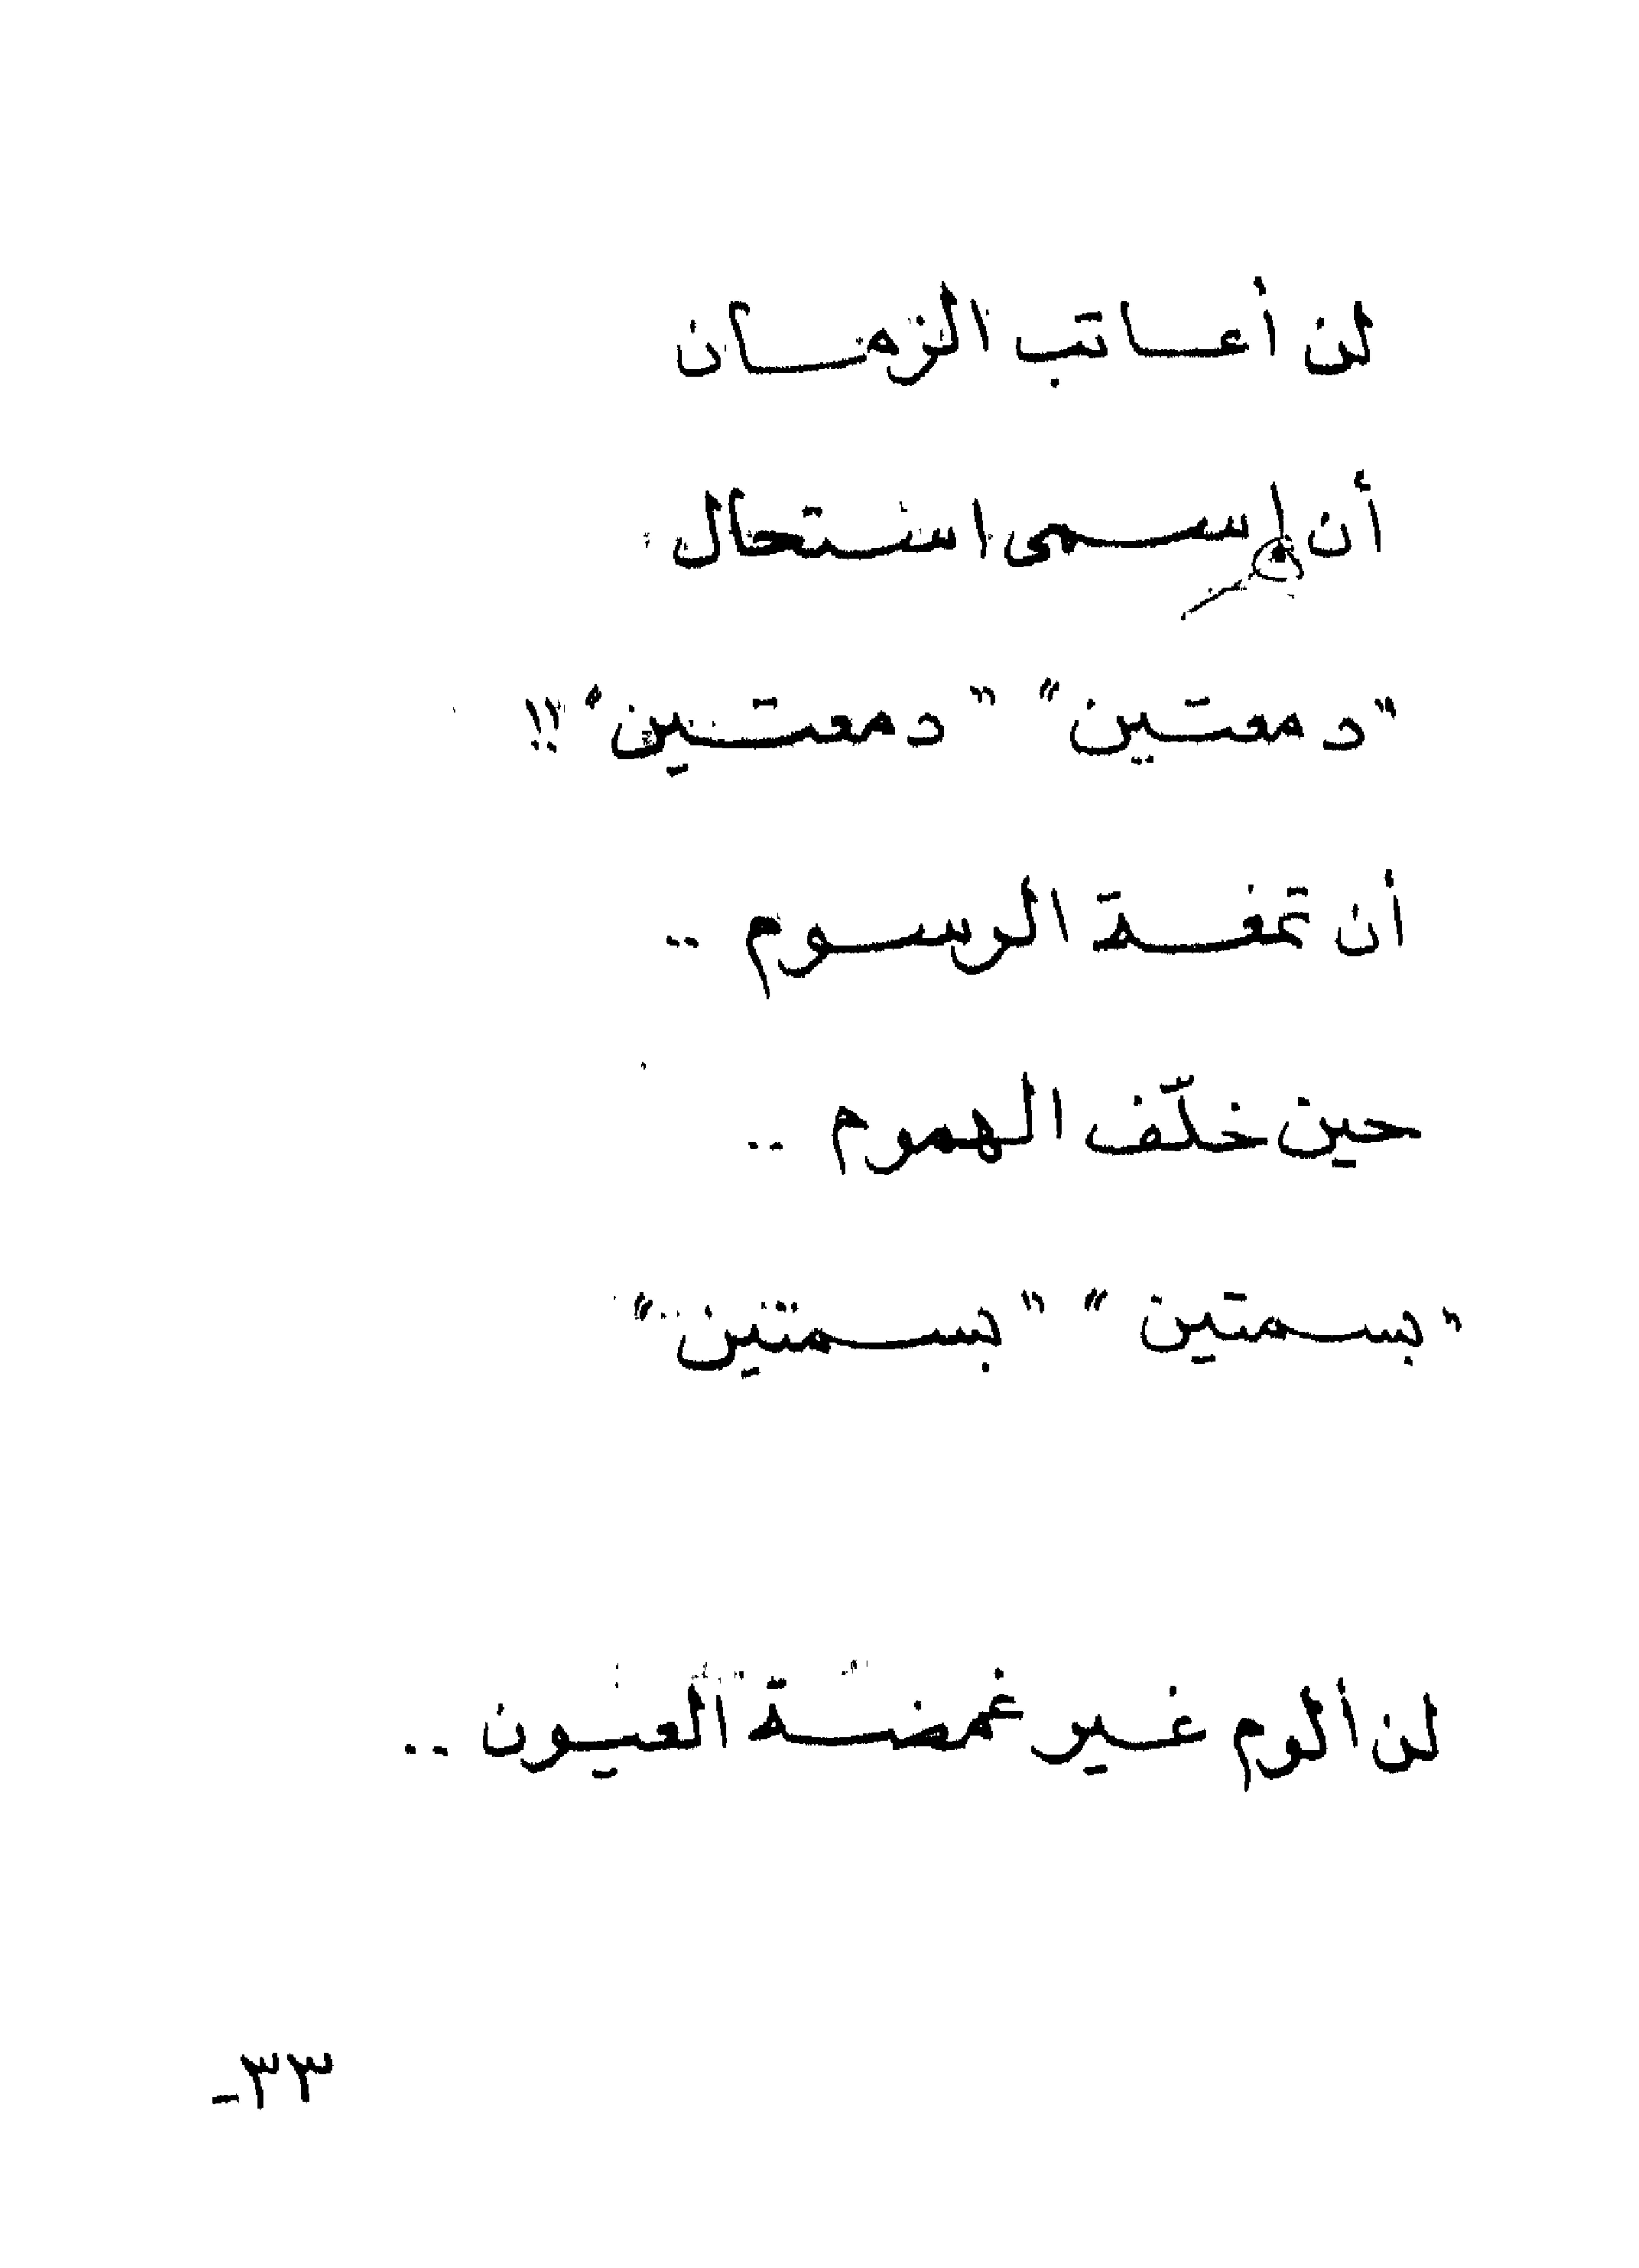 لن أعاتب الزمان
أن إسمى استحال
"دمعتين" "دمعتين" !!
أن تمغة الرسوم ..
حين خلّف الهموم ..
"بسمتين" "بسمتين"
لن ألوم غير غمضة العيون ..
٣٣-